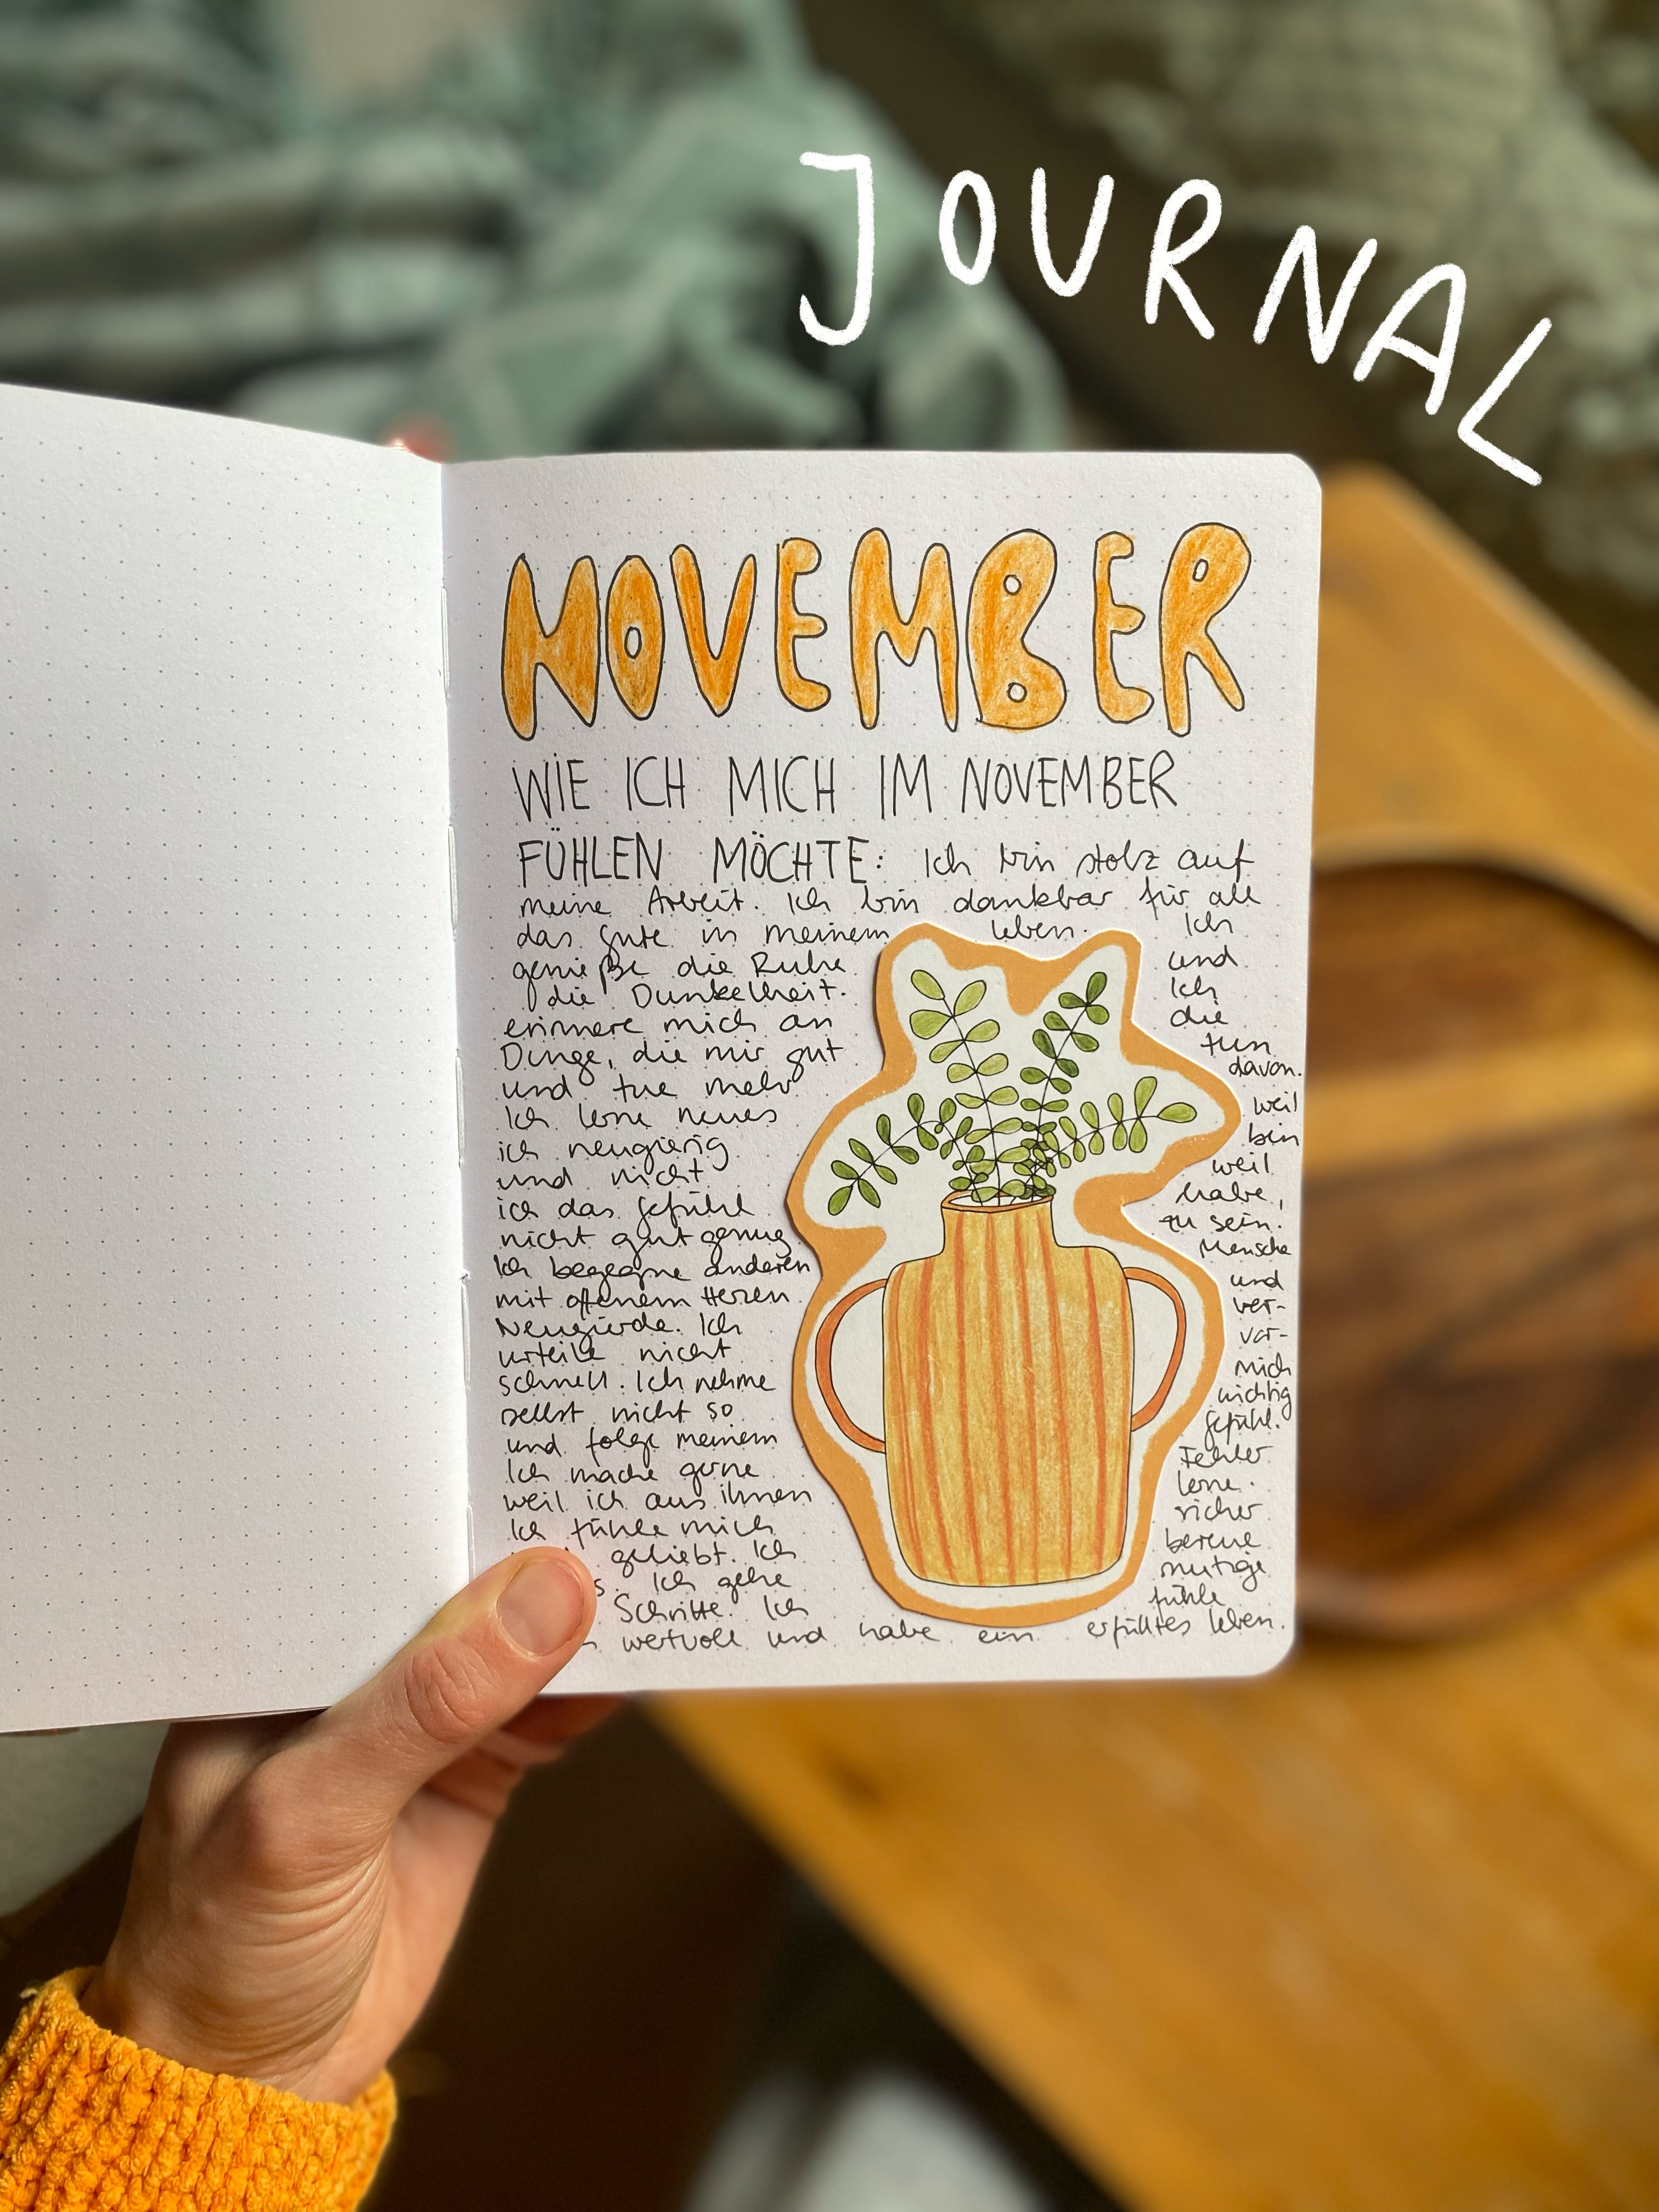 JOURNAL
NOVEMBER
WIE ICH MICH IM NOVEMBER
FÜHLEN MÖCHTE: Ich bin stolz auf
meine Arbeit. Ich bin dankbar für all
das gute in meinem leben. Ich
genieße die Ruhe und
die Dunkelheit. Ich
erinnere mich an die
Dinge, die mir gut tun
und tue mehr davon.
Ich lerne neues weil
ich neugierig bin
und nicht weil
ich das gefühl habe,
nicht gut genug zu sein.
Ich begegne anderen Mensche
mit offenem Herzen und
Neugierde. Ich ver-
urteile nicht vor-
schnell. Ich nehme mich
selbst nicht so wichtig
und folge meinem gefühl.
Ich mache gerne Fehler
weil ich aus ihnen lerne.
Ich fühle mich sicher
geliebt. Ich bereue
s. Ich gehe mutige
Schritte. Ich fühle
wertvoll und habe ein erfülltes leben.